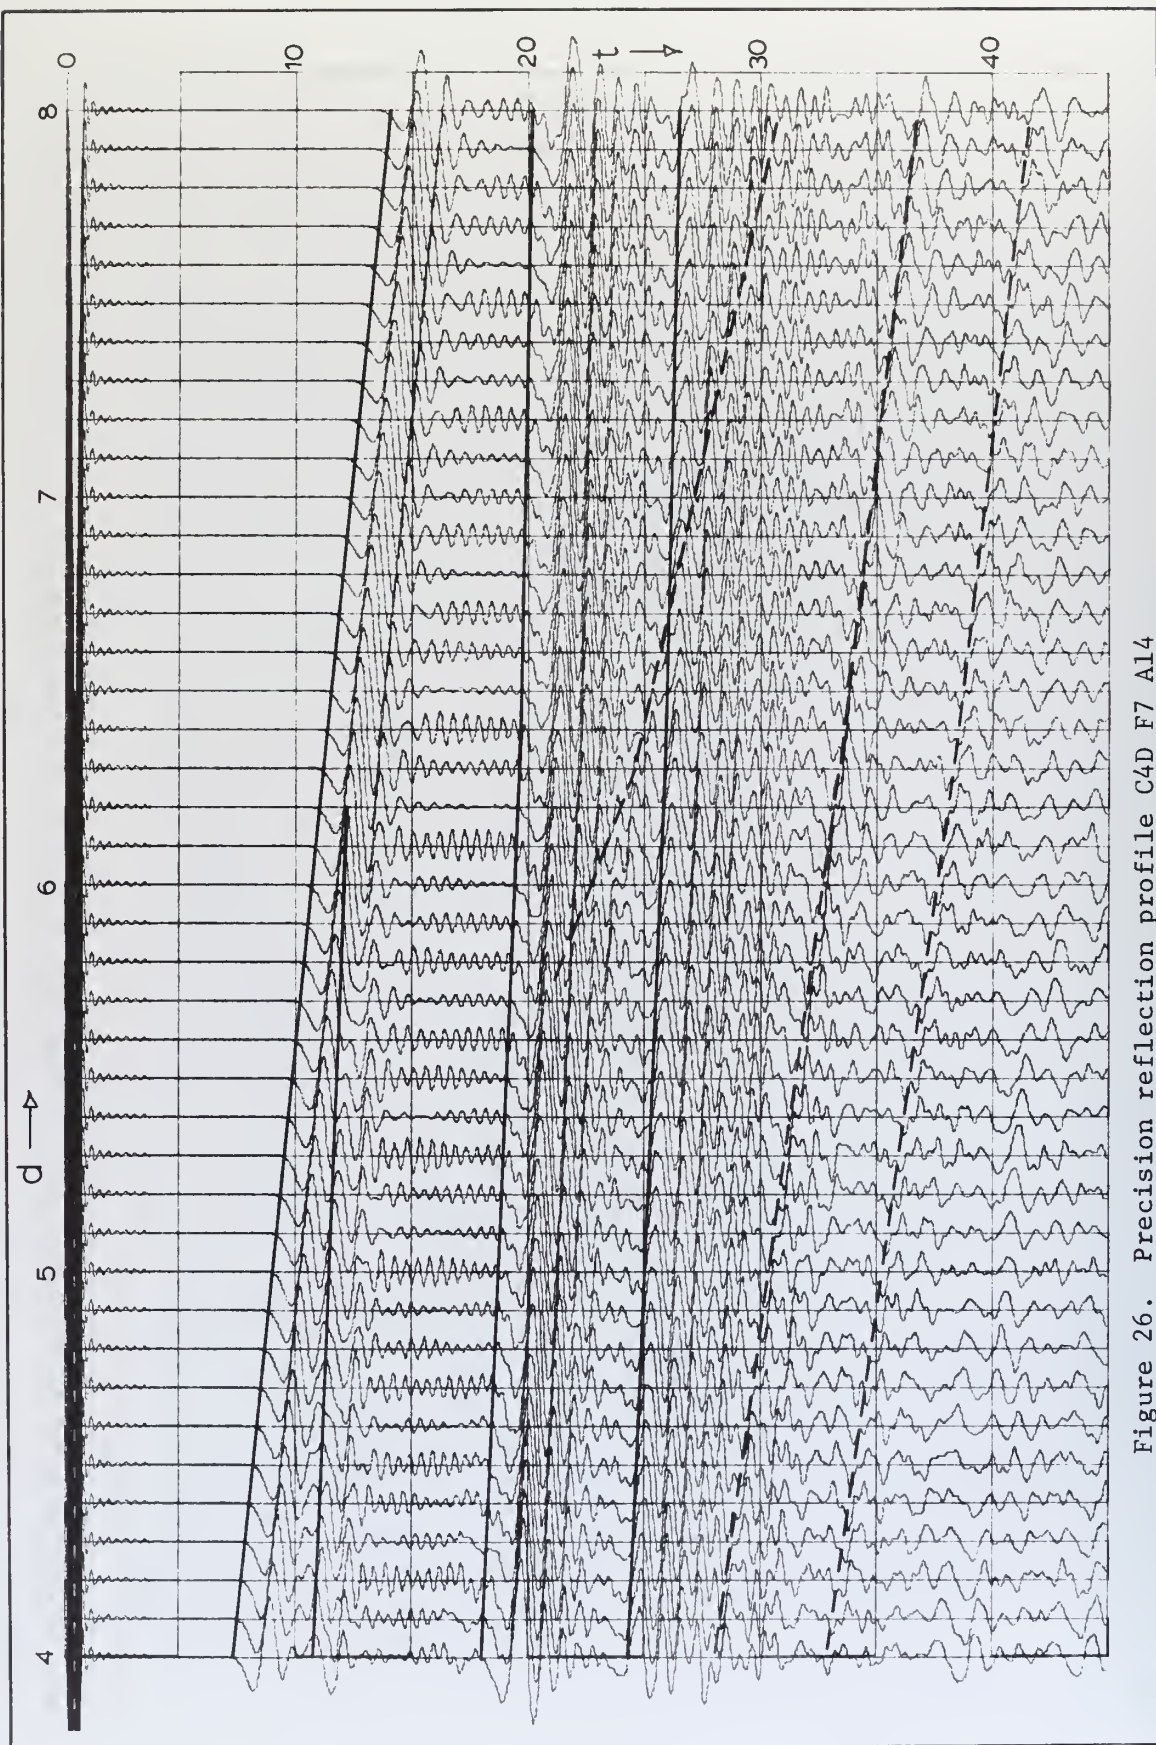 d →
4 5 6 7 8
0
10
20
t →
30
40
Figure 26. Precision reflection profile C4D F7 A14